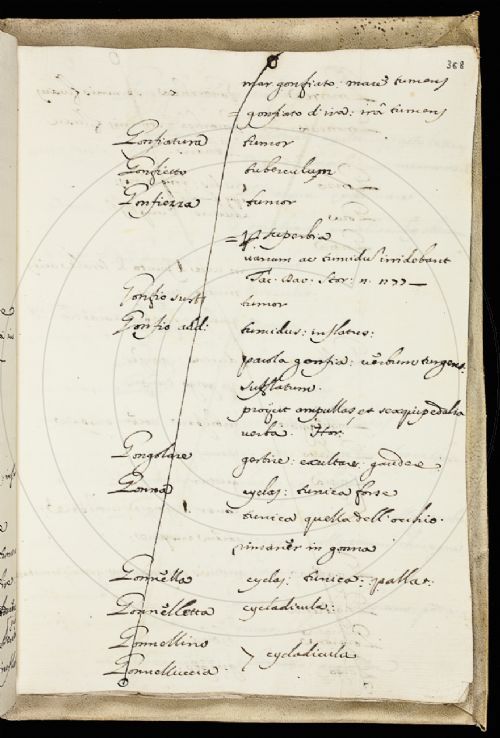 368
mar gonfiato: mare tumens
= gonfiato d'ira: irâ tumens
Gonfiatura tumor
Gonfietto tuberculum
Gonfiezza tumor
= superbia
uanum ac tumidū irridebant
Tac.
Gonfio sust: tumor
Gonfio add: tumidus: inflatus:
parola gonfia: verbum turgens
sufflatum.
proijcit ampullas, et sesquipedalia
verba. Hor:
Gongolare gestire: exultare: gaudere
Gonna cyclas: tunica forse
tunica quella dell'occhio.
rimaner in gonna
Gonnella cyclas: tunica: palla:
Gonnelletta cycladicula:
Gonnellino
> cycladicula
Gonnelluccia